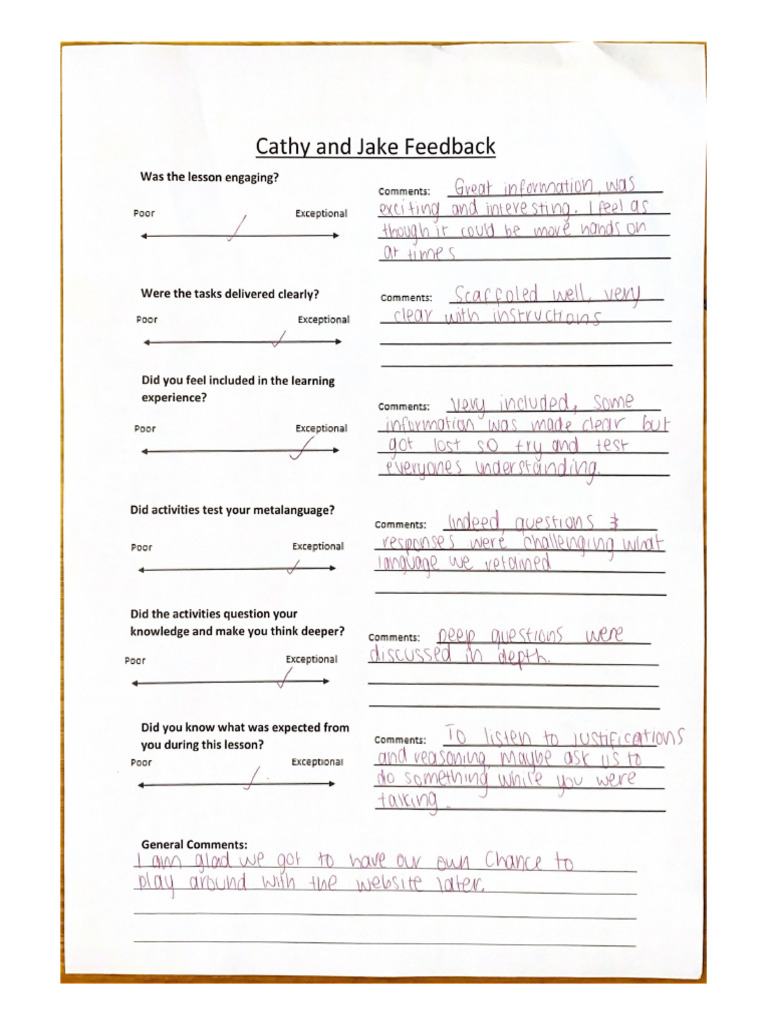 Cathy and Jake Feedback
Was the lesson engaging?
Poor Exceptional
Comments: Great information, was
exciting and interesting. I feel as
though it could be more hands on
at times
Were the tasks delivered clearly?
Poor Exceptional
Comments: Scaffoled well, very
clear with instructions
Did you feel included in the learning
experience?
Poor Exceptional
Comments: very included, some
information was made clear but
got lost so try and test
everyones understanding.
Did activities test your metalanguage?
Poor Exceptional
Comments: Indeed, questions &
responses were challenging what
language we retained
Did the activities question your
knowledge and make you think deeper?
Poor Exceptional
Comments: Deep questions were
discussed in depth.
Did you know what was expected from
you during this lesson?
Poor Exceptional
Comments: To listen to justifications
and reasoning, maybe ask us to
do something while you were
talking.
General Comments:
I am glad we got to have our own chance to
play around with the website later.